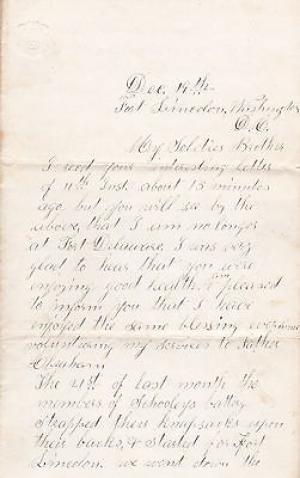 Dec. 19th
Fort Lincoln, Washington
D.C.
My Soldier Brother
I recd your interesting letter
of 11th Inst. about 15 minutes
ago but you will see by the
above, that I am no longer
at Fort Delaware, I was very
glad to hear that you were
enjoying good health, & am pleased
to inform you that I have
enjoyed the same blessing ever since
volunteering my services to Father
Abraham.
The 21st of last month the
members of Schooleys battery
strapped their Knapsacks upon
their backs, & started for Fort
Lincoln. we went down the